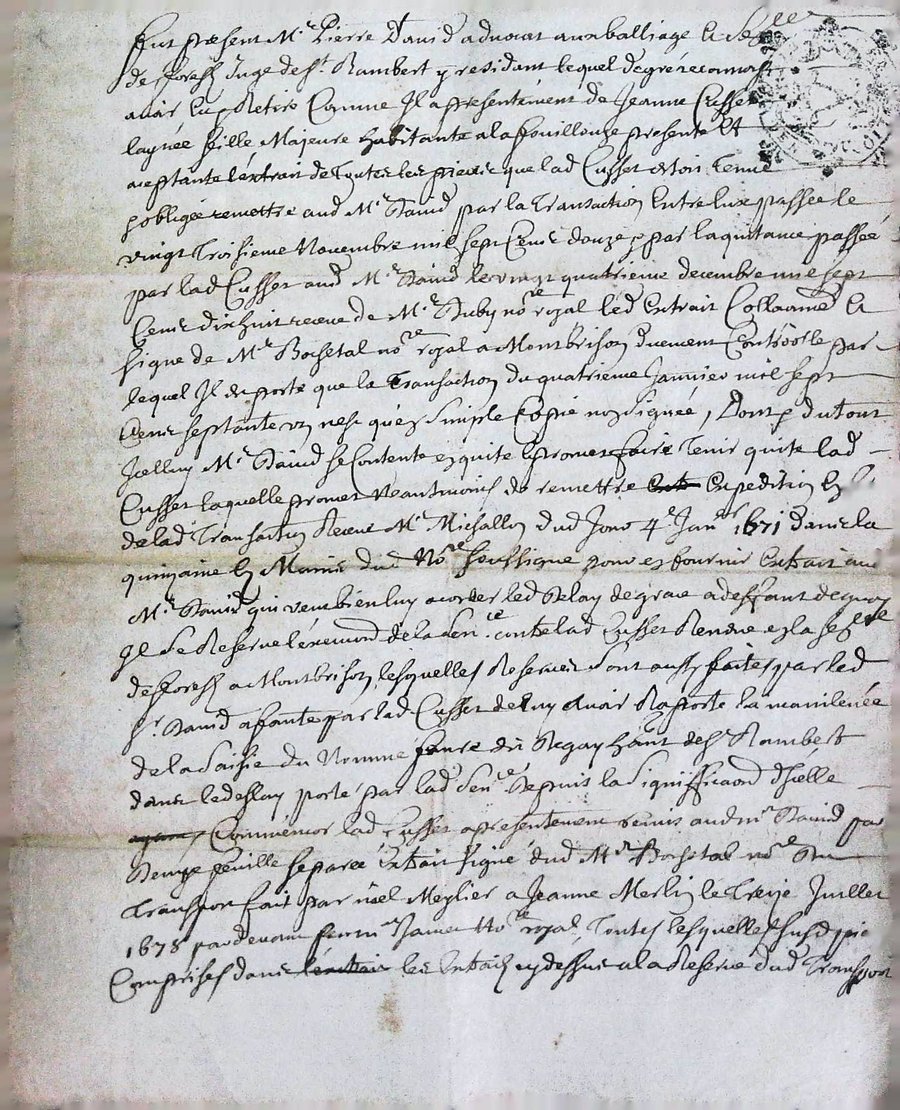 fut present Me Pierre David advocat au balliage et
de forest Juge de St Rambert y residant lequel de gré reconnoit
avoir eu et Retiré Comme Il a presentement de Jeanne Cusset
laynée fille Majeure habitante a la fouillouze presente et
aceptante l'extrait de Toutes les pieces que lad Cusset estoit Tenue
et obligée remettre aud Me David par la Transaction Entre Eux passée le
vingt Troisieme Novembre mil sept Cens douze et par la quitance passée
par lad Cusset aud Me David le vingt quatrieme decembre mil sept
Cens dix huit receue de Me Duby nore royal led Extrait Collationné et
signe de Me Boisetal nore royal a Montbrison duement Controole par
lequel Il est porté que la Transaction du quatrieme Janvier mil sept
Cens septante un n'est que simple Copie non signée, Dont et du tout
Icelluy Me David se Contente en quite et promet faire Tenir quite lad
Cusset laquelle promet Neantmoins de remettre Expedition
de lad Transaction Receue Me Michallon dud Jour 4e Janr 1671 dans la
quinzaine es Mains dud Nore soussigne pour en fournir Extrait aud
Me David qui veut bien luy acorder led Delay de grace a deffaut de quoy
Il se Reserve de la Sence contre lad Cusset Rendue en la
de forest a Montbrison, lesquelles Reserves sont aussy faites par lad
Sr David a faute par lad Cusset de luy avoir Raporté la mainlevée
de la Saisie du Nomme faure dit Begay hant de St Rambert
dans le deslay porté par lad Sence Depuis la Signiffication d'Icelle
Comme lad Cusset a presentement remis aud Me David par
feuille separée Extrait signé dud Me Boisetal nore du
Transport fait par Noel Meylier a Jeanne Merlin le Treize Juillet
1678 pardevant Jamet Nore royal, Toutes lesquelles susd pie
Comprises dans les Extraits cy dessus a la Reserve dud Transport